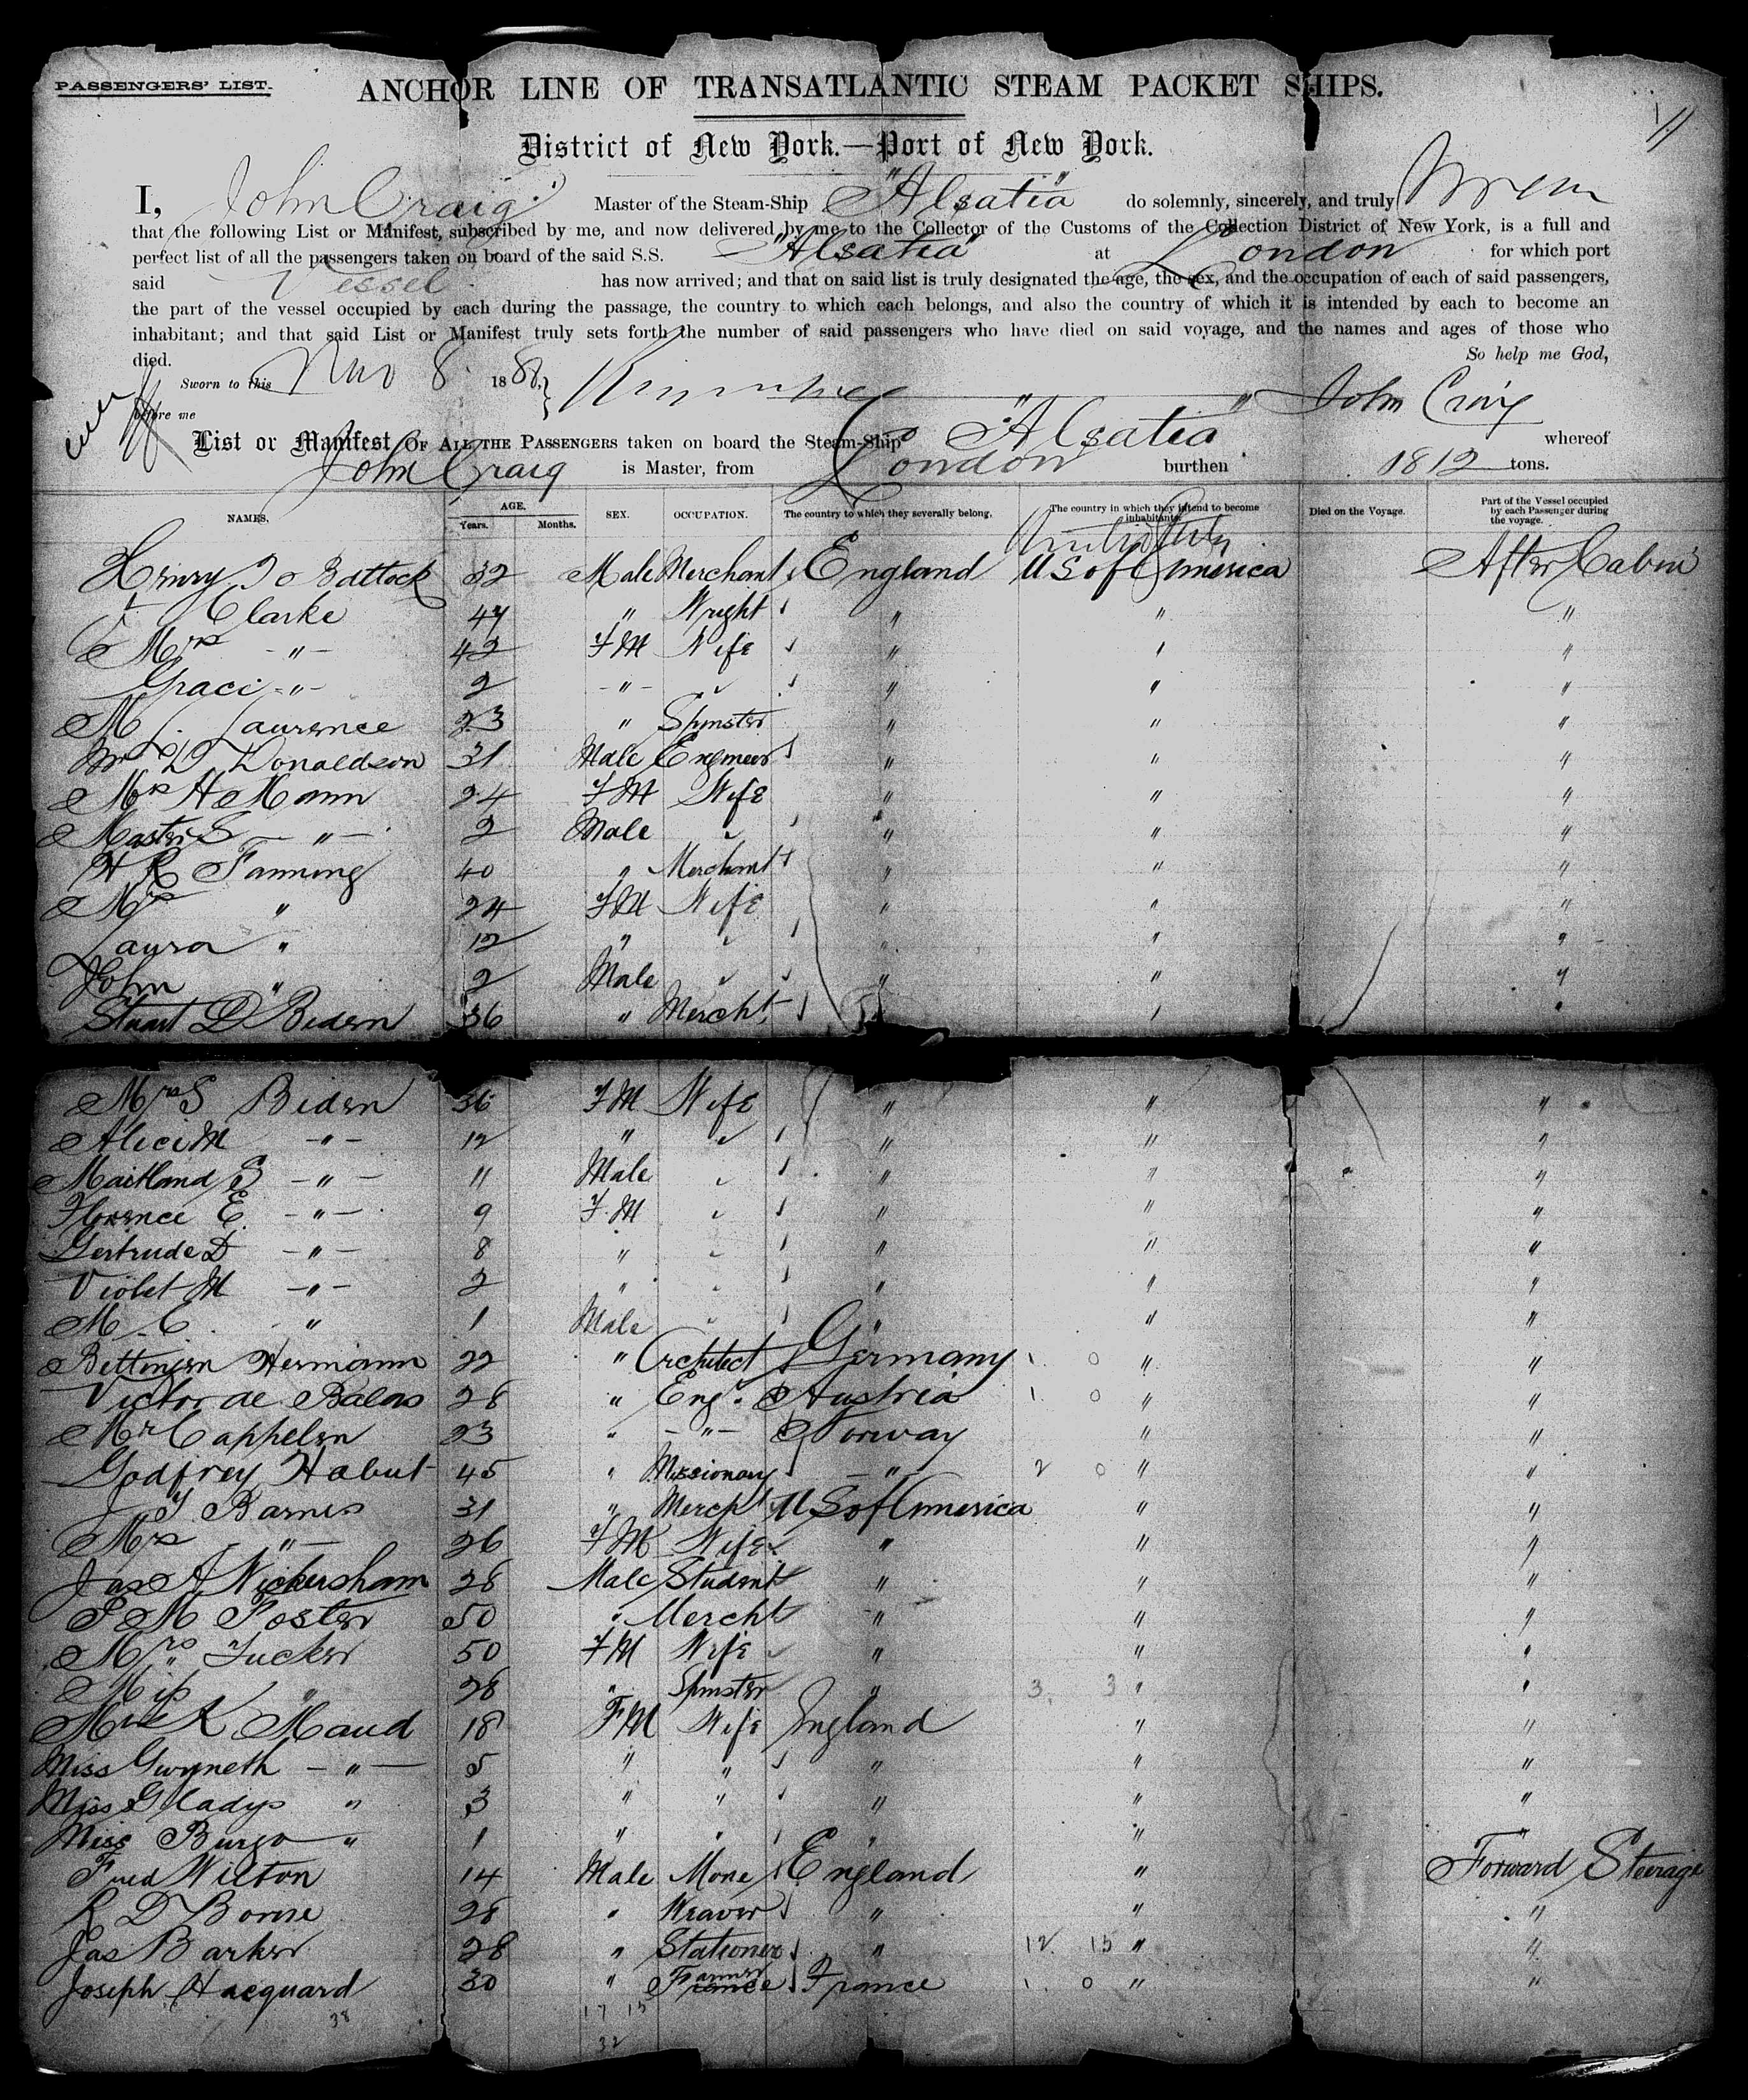 PASSENGERS' LIST.
ANCHOR LINE OF TRANSATLANTIC STEAM PACKET SHIPS.
11
District of New York.—Port of New York.
I, John Craig Master of the Steam-Ship "Alsatia" do solemnly, sincerely, and truly
that the following List or Manifest, subscribed by me, and now delivered by me to the Collector of the Customs of the Collection District of New York, is a full and
perfect list of all the passengers taken on board of the said S.S. "Alsatia" at London for which port
said Vessel has now arrived; and that on said list is truly designated the age, the sex, and the occupation of each of said passengers,
the part of the vessel occupied by each during the passage, the country to which each belongs, and also the country of which it is intended by each to become an
inhabitant; and that said List or Manifest truly sets forth the number of said passengers who have died on said voyage, and the names and ages of those who
died. So help me God,
Sworn to this Nov 8 1880, John Craig
before me
List or Manifest OF ALL THE PASSENGERS taken on board the Steam-Ship "Alsatia" whereof
John Craig is Master, from London burthen 1812 tons.
NAMES. AGE. Years. Months. SEX. OCCUPATION. The country to which they severally belong. The country in which they intend to become inhabitants. Died on the Voyage. Part of the Vessel occupied by each Passenger during the voyage.
Henry 32 Male Merchant England U S of America After Cabin
Clarke 47 " Wright " " "
Mrs -"- 42 FM Wife " " "
Graci -"- 2 -"- " " " "
M Laurence 23 " Spinster " " "
Mr D Donaldson 31 Male Engineer " " "
Mrs H Mann 24 FM Wife " " "
Master S -"- 2 Male " " " "
H R Fanning 40 " Merchant " " "
Mrs " 24 FM Wife " " "
Laura " 12 " " " " "
John " 2 Male " " " "
Stuart D Biden 36 " Mercht " " "
Mrs S Biden 36 FM Wife " " "
Alice M -"- 12 " " " " "
Maitland S -"- 11 Male " " " "
Florence E. -"- 9 F.M " " " "
Gertrude D -"- 8 " " " " "
Violet M -"- 2 " " " " "
M. C. " 1 Male " " " "
Bettingen Hermann 22 " Architect Germany 1 0 " "
Victor de Balas 28 " Eng. Austria 1 0 " "
Mr Cappelen 23 " -"- Norway " "
Godfrey Habut 45 " Missionary -"- 2 0 " "
J Y Barnes 31 " Mercht U S of America " "
Mrs -"- 26 FM Wife " " "
Jas A Nickersham 28 Male Student " " "
P M Foster 50 " Mercht " " "
Mrs Tucker 50 FM Wife " " "
Miss " 28 " Spinster " 3 3 " "
Maud 18 FM Wife England " "
Miss Gwyneth -"- 5 " " " " "
Miss Gladys " 3 " " " " "
Miss " 1 " " " " "
Fred Wilton 14 Male None England " Forward Steerage
R D Borne 28 " Weaver " " "
Jas Barker 28 " Stationer " 12 15 " "
Joseph Hacquard 30 " Farmer France France 1 0 " "
38
17 15
32